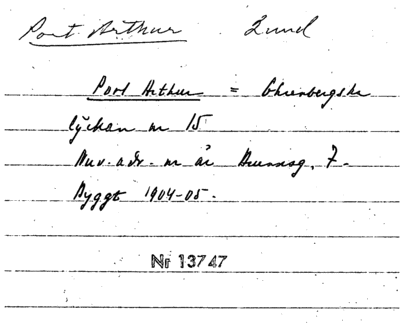 Port Arthur Lund
Port Arthur = Ehrenbergska
lyckan nr 15
Nuv. adr. nr är Brunnsg. 7.
Byggt 1904-05.
Nr 13747